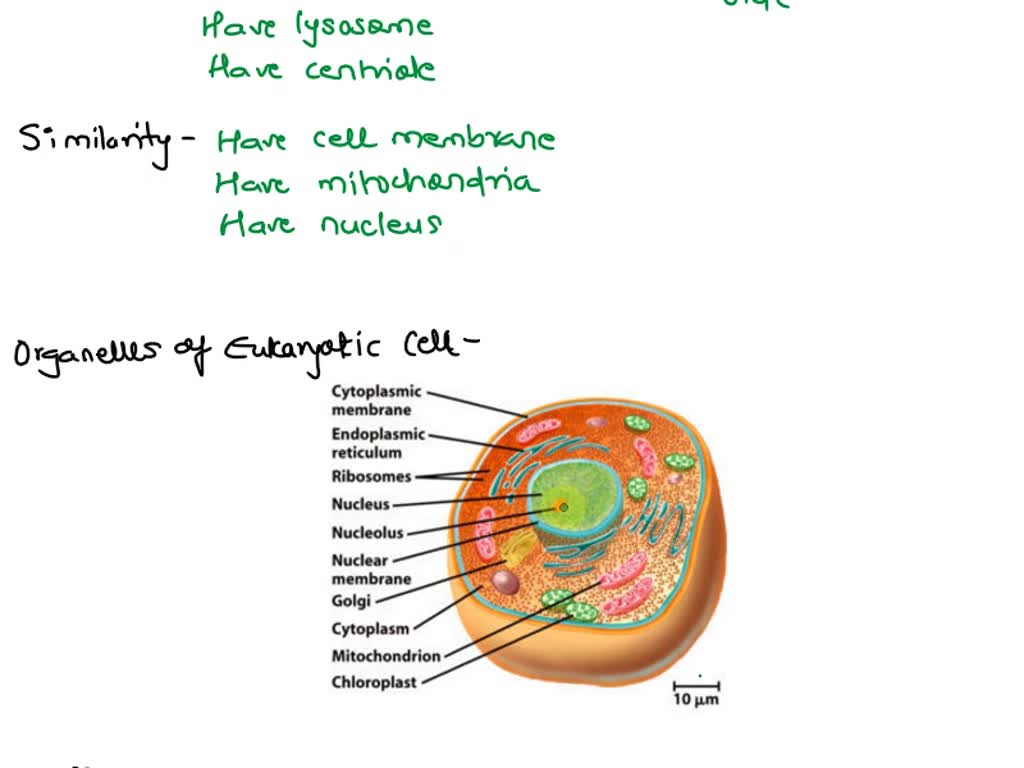 Have lysosome
Have centriole
Similarity - Have cell membrane
Have mitochondria
Have nucleus
Organelles of Eukaryotic Cell -
Cytoplasmic
membrane
Endoplasmic
reticulum
Ribosomes
Nucleus
Nucleolus
Nuclear
membrane
Golgi
Cytoplasm
Mitochondrion
Chloroplast
10 µm